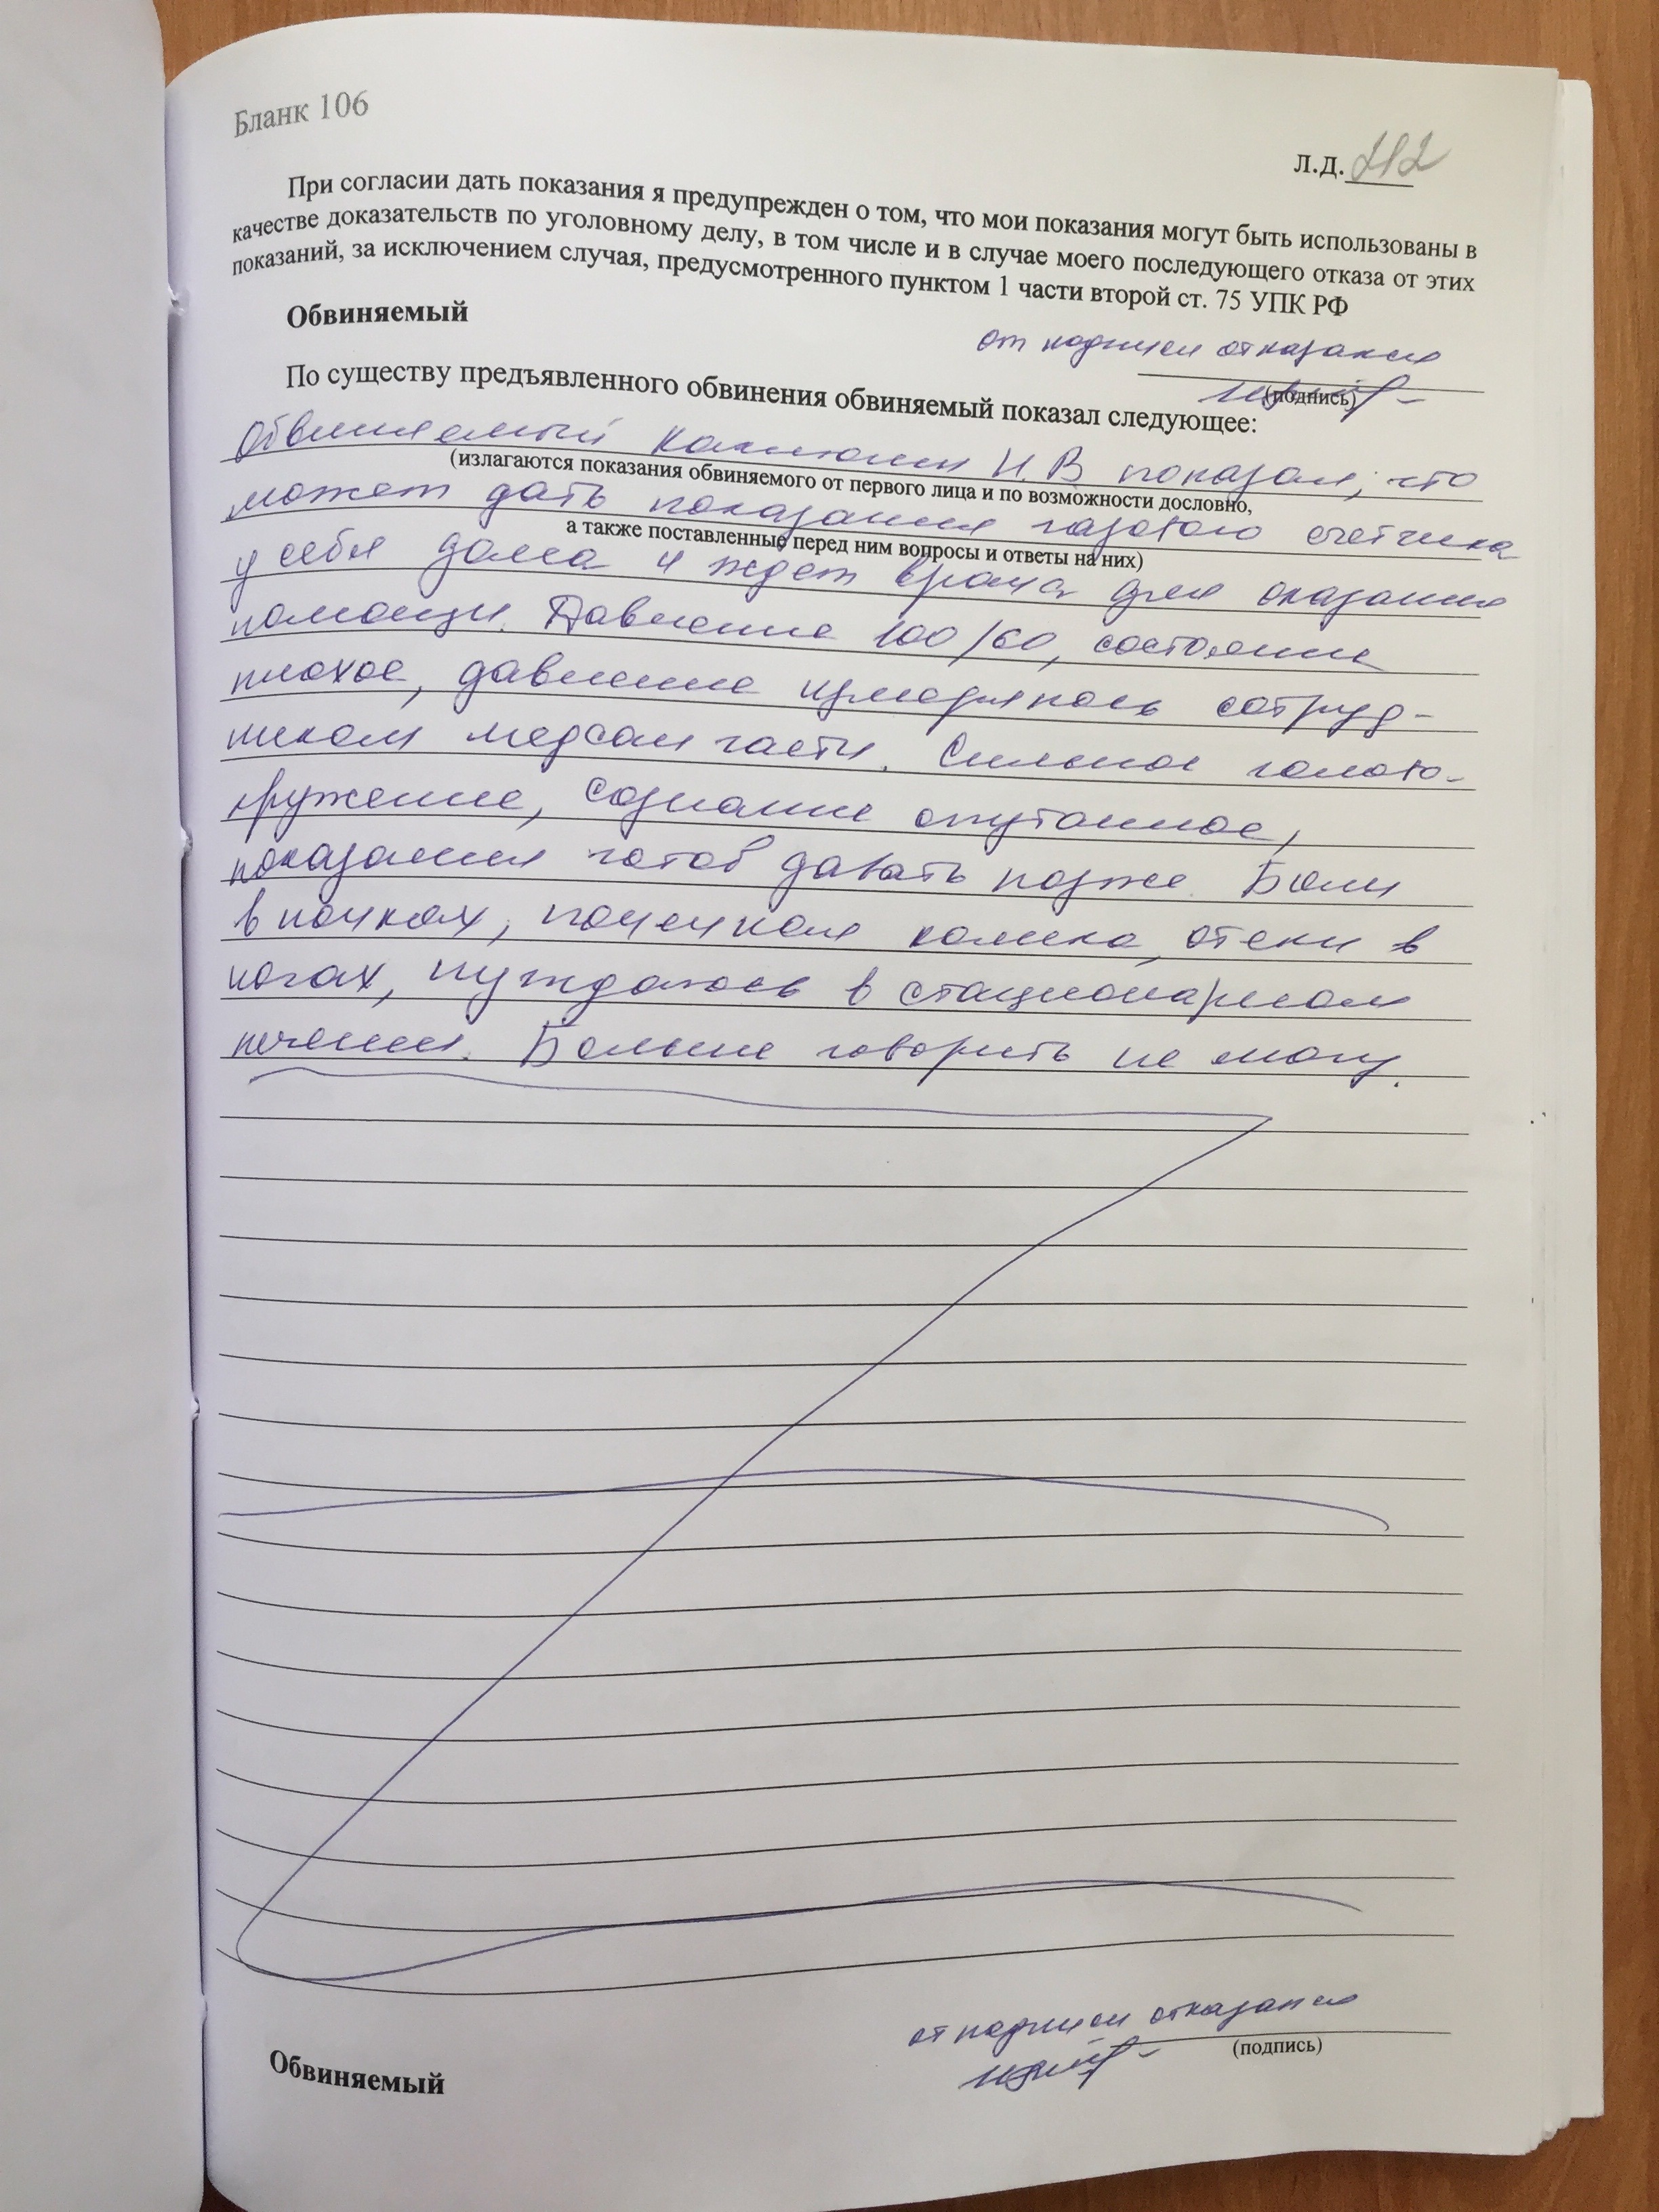 Бланк 106
Л.Д. 212
При согласии дать показания я предупрежден о том, что мои показания могут быть использованы в
качестве доказательств по уголовному делу, в том числе и в случае моего последующего отказа от этих
показаний, за исключением случая, предусмотренного пунктом 1 части второй ст. 75 УПК РФ
Обвиняемый
от подписи отказался
(подпись)
По существу предъявленного обвинения обвиняемый показал следующее:
Обвиняемый И.В показал, что
(излагаются показания обвиняемого от первого лица и по возможности дословно,
может дать показания газового счетчика
а также поставленные перед ним вопросы и ответы на них)
у себя дома и ждет врача для оказания
помощи. Давление 100/60, состояние
плохое, давление измерялось сотруд-
ником медсанчасти. Сильное голово-
кружение, сознание спутанное,
показания готов давать позже. Боли
в почках, почечная колика, отеки в
ногах, нуждаюсь в стационарном
лечении. Больше говорить не могу.
от подписи отказался
(подпись)
Обвиняемый